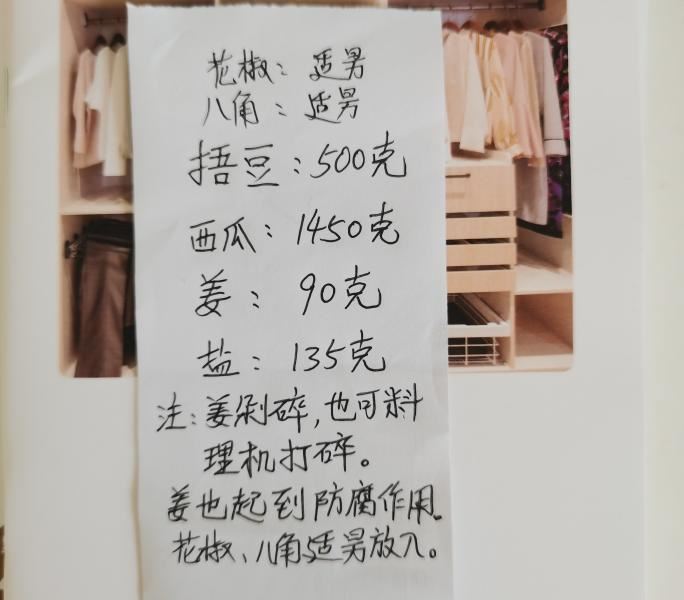 花椒：适男
八角：适男
捂豆：500克
西瓜：1450克
姜：90克
盐：135克
注：姜剁碎，也可料
理机打碎。
姜也起到防腐作用。
花椒、八角适男放入。